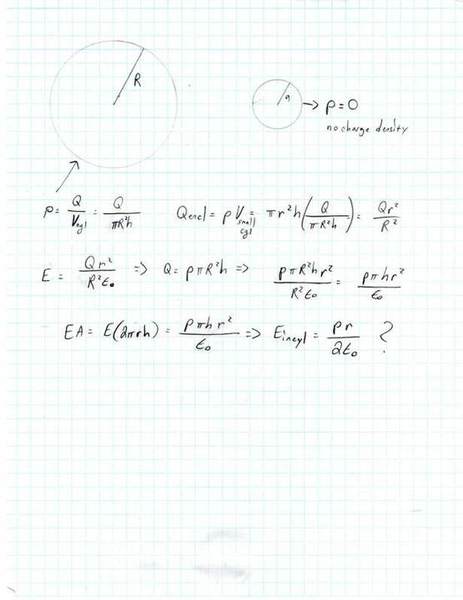 R
a → ρ = 0
no charge density
ρ = Q/V_cyl = Q/πR²h   Q_encl = ρ V_small cyl = πr²h(Q/πR²h) = Qr²/R²
E = Qr²/R²ε₀ ⇒ Q = ρπR²h ⇒ ρπR²hr²/R²ε₀ = ρπhr²/ε₀
EA = E(2πrh) = ρπhr²/ε₀ ⇒ E_incyl = ρr/2ε₀ ?